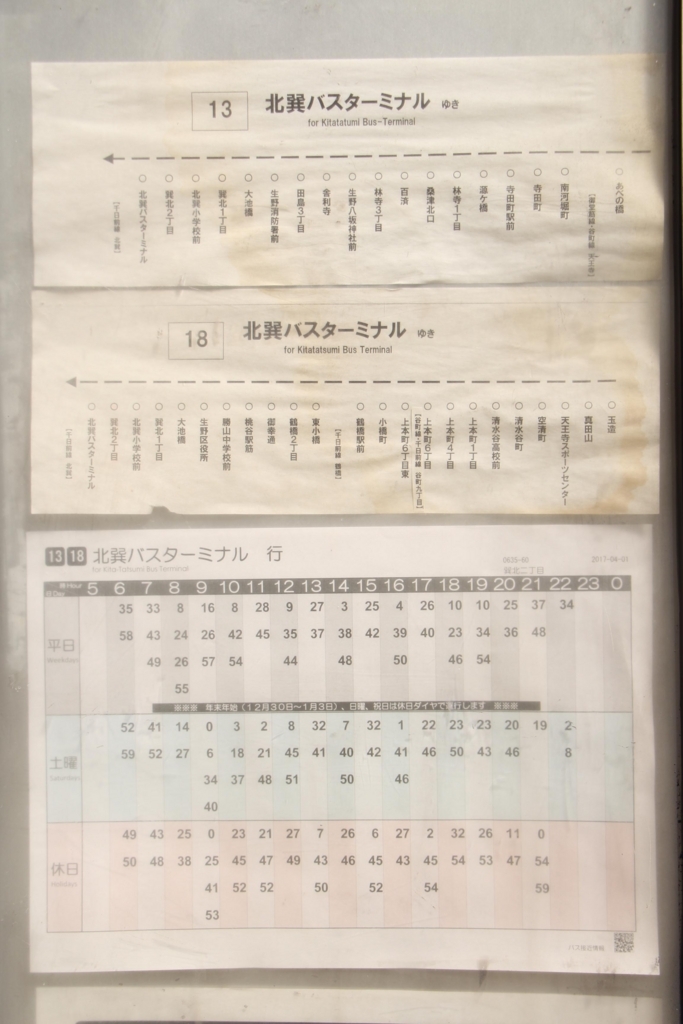 13 北巽バスターミナル ゆき
for Kitatatumi Bus-Terminal
あべの橋
[御堂筋線・谷町線 天王寺]
南河堀町
寺田町
寺田町駅前
源ケ橋
林寺1丁目
桑津北口
百済
林寺3丁目
生野八坂神社前
舎利寺
田島3丁目
生野消防署前
大池橋
巽北1丁目
北巽小学校前
巽北2丁目
北巽バスターミナル
[千日前線 北巽]
18 北巽バスターミナル ゆき
for Kitatatsumi Bus Terminal
玉造
真田山
天王寺スポーツセンター
空清町
清水谷町
清水谷高校前
上本町1丁目
上本町4丁目
上本町6丁目
[谷町線・千日前線 谷町九丁目]
上本町6丁目東
小橋町
鶴橋駅前
[千日前線 鶴橋]
東小橋
鶴橋2丁目
御幸通
桃谷駅筋
勝山中学校前
生野区役所
大池橋
巽北1丁目
北巽小学校前
巽北2丁目
北巽バスターミナル
[千日前線 北巽]
13 18 北巽バスターミナル 行
for Kita Tatsumi Bus Terminal
巽北二丁目
時Hour 5 6 7 8 9 10 11 12 13 14 15 16 17 18 19 20 21 22 23 0
日Day
平日
35 33 8 16 8 28 9 27 3 25 4 26 10 10 25 37 34
58 43 24 26 42 45 35 37 38 42 39 40 23 34 36 48
49 26 57 54 44 48 50 46 54
55
※※※ 年末年始(12月30日~1月3日)、日曜、祝日は休日ダイヤで運行します ※※※
土曜
52 41 14 0 3 2 8 32 7 32 1 22 23 23 20 19 2
59 52 27 6 18 21 45 41 40 42 41 46 50 43 46 8
34 37 48 51 50 46
40
休日
Holidays
49 43 25 0 23 21 27 7 26 6 27 2 32 26 11 0
50 48 38 25 45 47 49 43 46 45 43 45 54 53 47 54
41 52 52 50 52 54 59
53